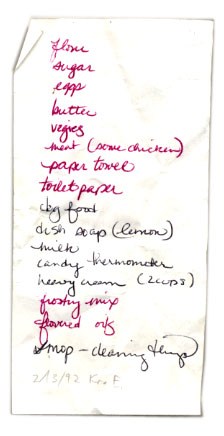 flour
sugar
eggs
butter
vegies
meat (some chicken)
paper towel
toilet paper
dog food
dish soap (lemon)
milk
candy thermometer
heavy cream (2 cups)
frosting mix
flavored oils
mop - cleaning things
2/13/92